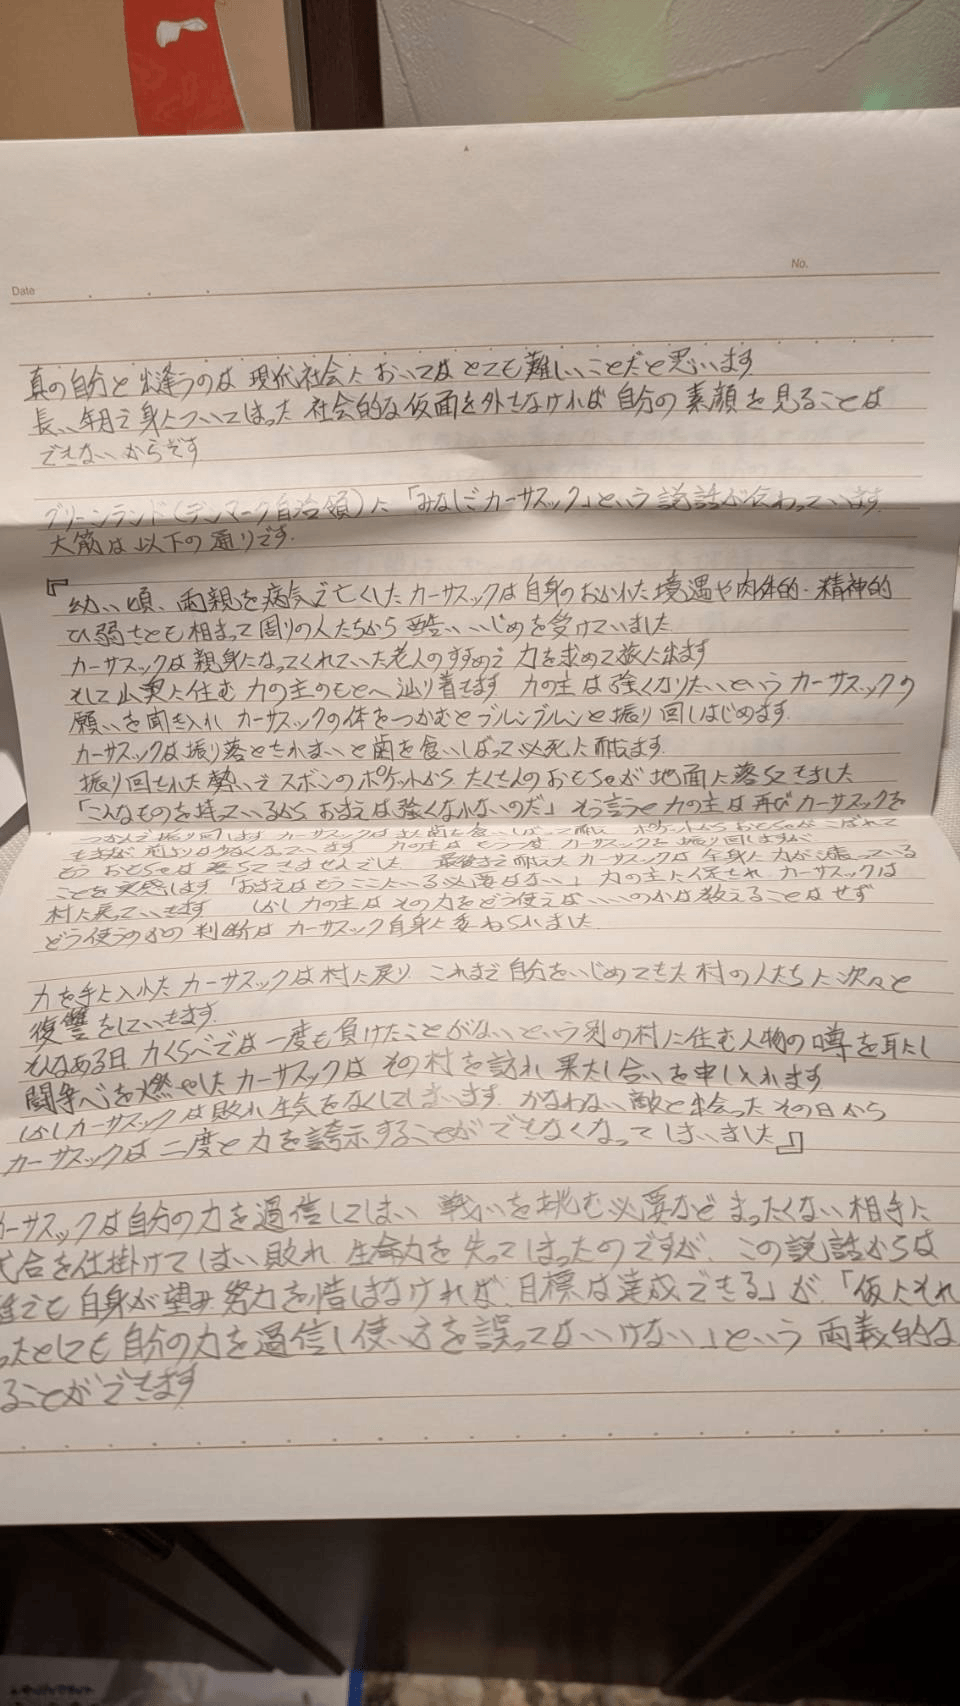 Date
No.
真の自分と出逢うのは 現代社会においてはとても難しいことだと思います
長い年月で身についてしまった 社会的な仮面を外さなければ 自分の素顔を見ることは
できないからです
グリーンランド(デンマーク自治領)に「みなしごカーサスック」という説話が伝わっています
大筋は以下の通りです.
『幼い頃、両親を病気で亡くしたカーサスックは自身のおかれた境遇や肉体的・精神的
ひ弱さとも相まって周りの人たちから 酷いいじめを受けていました
カーサスックは親身になってくれていた老人のすすめで 力を求めて旅に出ます
そして山奥に住む 力の主のもとへ辿り着きます 力の主は強くなりたいというカーサスックの
願いを聞き入れ カーサスックの体をつかむとブルンブルンと振り回しはじめます.
カーサスックは振り落とされまいと歯を食いしばって必死に耐えます.
振り回された勢いで ズボンのポケットから たくさんのおもちゃが 地面に落ちてきました
「こんなものを持っているから おまえは強くなれないのだ」 そう言うと力の主は再びカーサスックを
つかんで振り回します カーサスックはまた歯を食いしばって耐え ポケットから おもちゃがこぼれて
きますが 前よりは少なくなっています 力の主は もう一度 カーサスックを振り回しますが
もう おもちゃは 落ちてきませんでした 最後まで耐えたカーサスックは 全身に力が漲っている
ことを実感します 「おまえはもうここにいる必要はない」 力の主に促され カーサスックは
村に戻っていきます しかし 力の主は その力をどう使えばいいのかは教えることはせず
どう使うのかの 判断は カーサスック自身に委ねられました
力を手に入れたカーサスックは村に戻り これまで自分をいじめてきた村の人たちに次々と
復讐をしていきます.
そんなある日、力くらべでは一度も負けたことがないという別の村に住む人物の噂を耳にし
闘争心を燃やしたカーサスックは その村を訪れ 果たし合いを申し入れます
しかしカーサスックは敗れ 生気をなくしてしまいます. かなわない敵と出会ったその日から
カーサスックは二度と力を誇示することができなくなってしまいました』
カーサスックは自分の力を過信してしまい 戦いを挑む必要など まったくない相手に
試合を仕掛けてしまい敗れ 生命力を失ってしまったのですが、この説話からは
誰でも自身が望み努力を惜しまなければ、目標は達成できる」が、「仮にそれ
ったとしても自分の力を過信し使い方を誤ってはいけない」という両義的な
ることができます